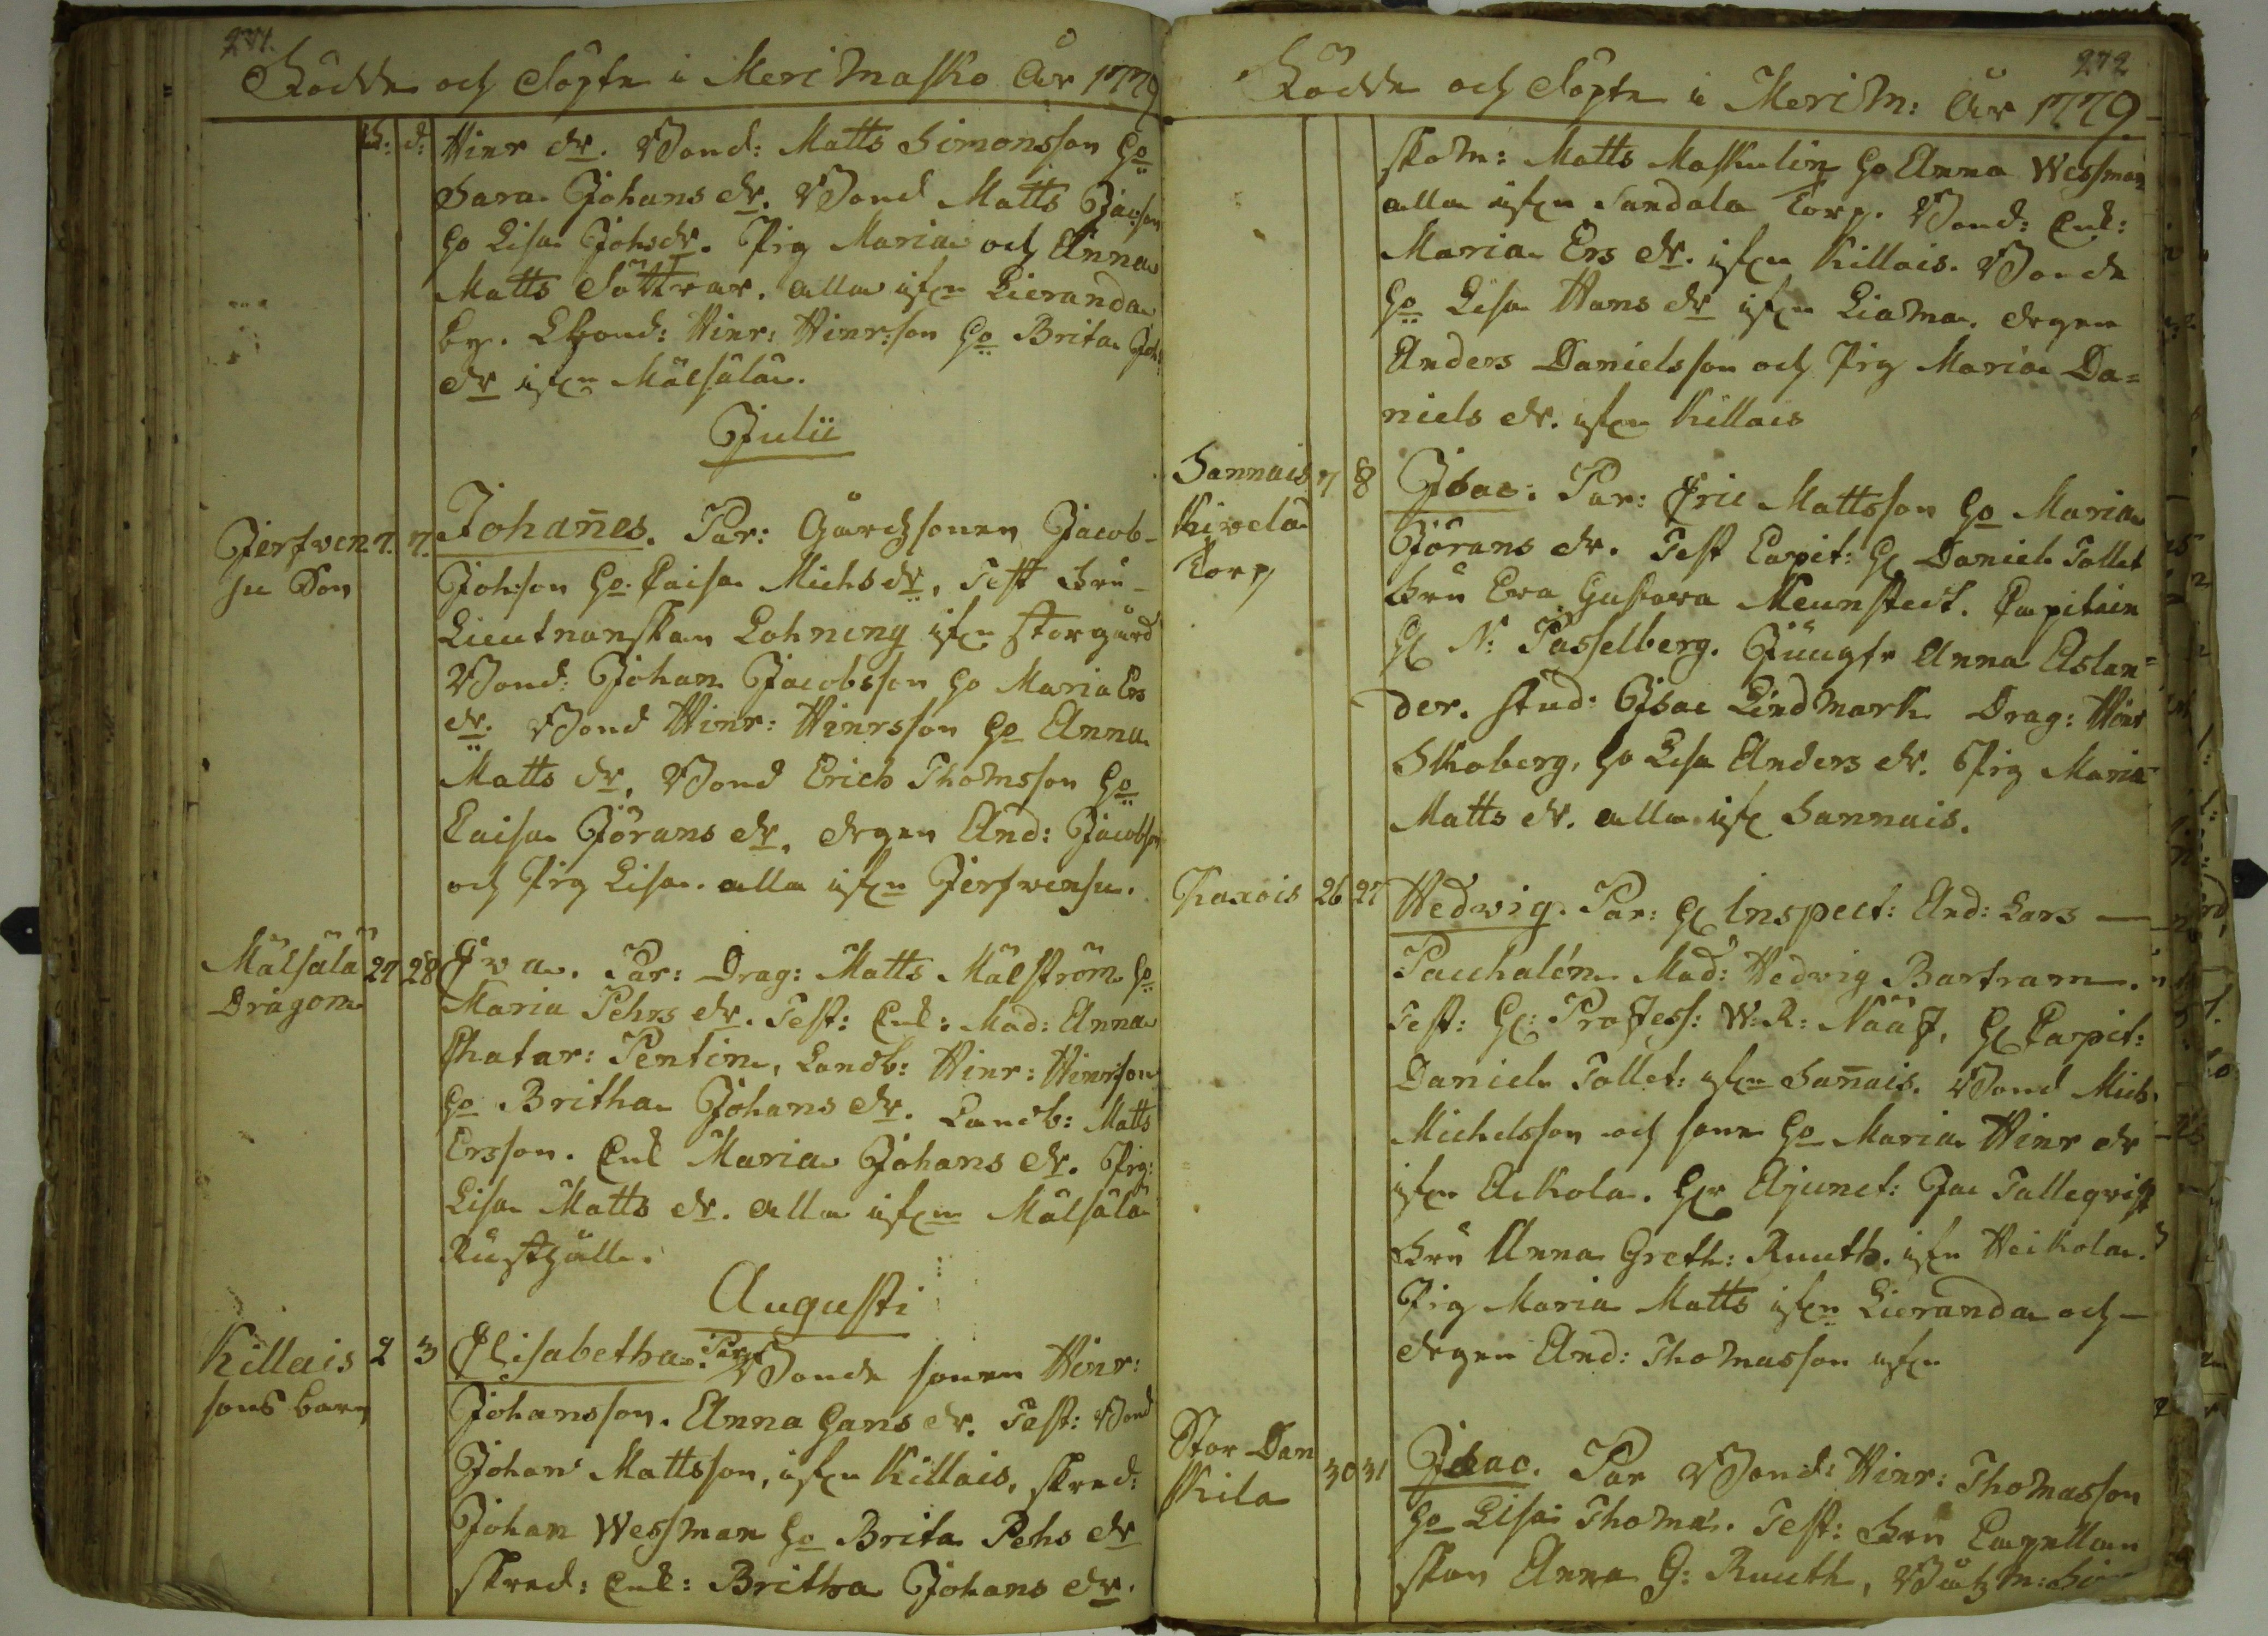 271.
Födde och Döpte i Merimasko År 1779
Hinr dr. Bond: Matts Simonsson ho
Sara Johans dr. Bond Matts Jacson
ho Lisa Johsdr. Pig Maria och Anna
Matts Döttrar. alla ifrn Lieranda
by. Lbond: Hinr: Hinr:son ho Brita Joh:
dr ifrn Mälsälä.
Julii
Jerfven
su Son
7. 7.
Johannes. Par: Gårdzsonen Jacob
Johson ho Caisa Michsdr, Test Fru
Lieutnanskan Lohning ifrn Storgård
Bond: Johan Jacobsson ho Maria Ers
dr. Bond Hinr: Hinrsson ho Anna
Matts dr, Bond Erich Thomsson ho
Caisa Jörans dr, drgen And: Jacobsn
och Pig Lisa. alla ifrn Jerfvensu.
Mälsälä
Dragon
27 28
Eva. Par: Drag: Matts Mälström ho
Maria Pehrs dr. Test: Enk: Mad: Anna
Chatar: Pentin, Landb: Hinr: Hinrson
ho Britha Johans dr. Landb: Matts
Ersson. Enk Maria Johans dr. Pig:
Lisa Matts dr. alla ifrn Mälsälä
Rusthåll.
Augusti
Killais
sons barn
2 3
Elisabetha. Par: Bonde sonen Hinr:
Johansson. Anna Hans dr. Test: Bond
Johan Mattsson, ifrn Killais, skred:
Johan Wessman ho Brita Pehs dr
skred: Enk: Britha Johans dr.
272
Födde och Döpte i Merim: År 1779
skom: Matts Maskulin ho Anna Wessman
alla ifrn Sandala Torp. Bond: Enk:
Maria Ers dr. ifrn Killais. Bonde
ho Lisa Hans dr ifrn Liama. drgen
Anders Danielsson och Pig Maria Da=
niels dr. ifrn Killais
Sannais
Kivela
Torp
7 8
Isac. Par: Eric Mattsson ho Maria
Jörans dr. Test Capit: H Daniel Tollet
Fru Eva Gustava Meunstedt. Capitain
H N: Passelberg. Jungfr Anna Aslan=
der. Stud: Isac Lindmark Drag: Hinr
Skoberg, ho Lisa Anders dr. Pig Maria
Matts dr. alla ifr Sannais.
Kaxois
26 27
Hedwig. Par: H Inspect: And: Lars
Pacchalén Mad: Hedvig Bartram.
Test: H: Profess: W: R: Nääf, H Capit:
Daniel Tollet: ifrn Sannais. Bond Mich
Michelsson och hans ho Maria Hinr dr
ifrn Ackola. Hr Ajunct: Jac Tallqvist
Fru Anna Greth: Ruuth. ifrn Heikola.
Pig Maria Matts ifrn Lieranda och
drgen And: Thomasson ifrn
Stor Dan
Skila
30 31
Isaac. Par Bond: Hinr: Thomasson
ho Lisa Thoma. Test: Fru Capellan
skan Anna G: Ruuth,